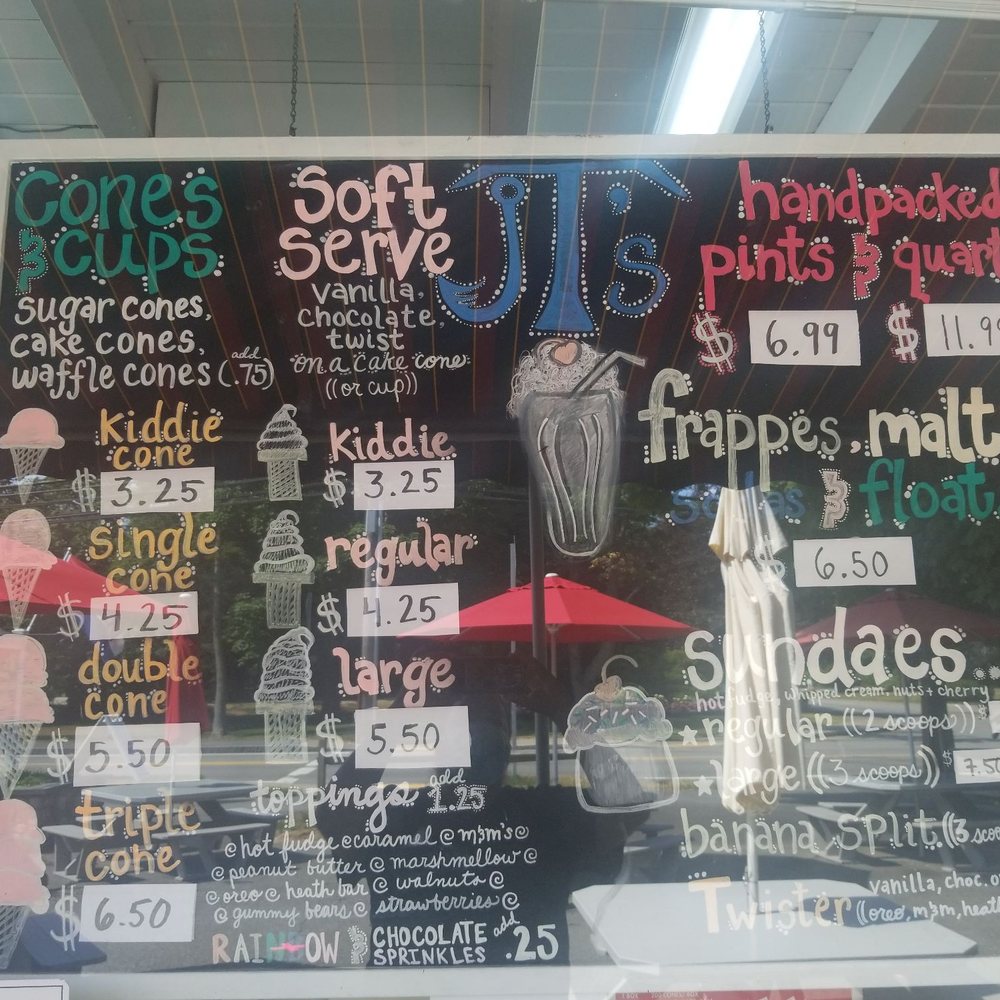 cones
& cups
sugar cones,
cake cones,
waffle cones (add .75)
kiddie
cone
$ 3.25
single
cone
$ 4.25
double
cone
$ 5.50
triple
cone
$ 6.50
Soft
Serve
vanilla,
chocolate,
twist
on a cake cone
((or cup))
kiddie
$ 3.25
regular
$ 4.25
large
$ 5.50
toppings add 1.25
@ hot fudge @ caramel @ m&m's @
@ peanut butter @ marshmellow @
@ oreo @ heath bar @ walnuts @
@ gummy bears @ strawberries @
RAINBOW & CHOCOLATE
SPRINKLES add .25
JT's
handpacked
pints & quart
$ 6.99 $ 11.9
frappes, malt
sodas & float
$ 6.50
sundaes...
hot fudge, whipped cream, nuts + cherry
★ regular ((2 scoops))
★ large ((3 scoops)) $ 7.50
banana split ((3 scoo
Twister vanilla, choc. o
((oreo, m&m, heat